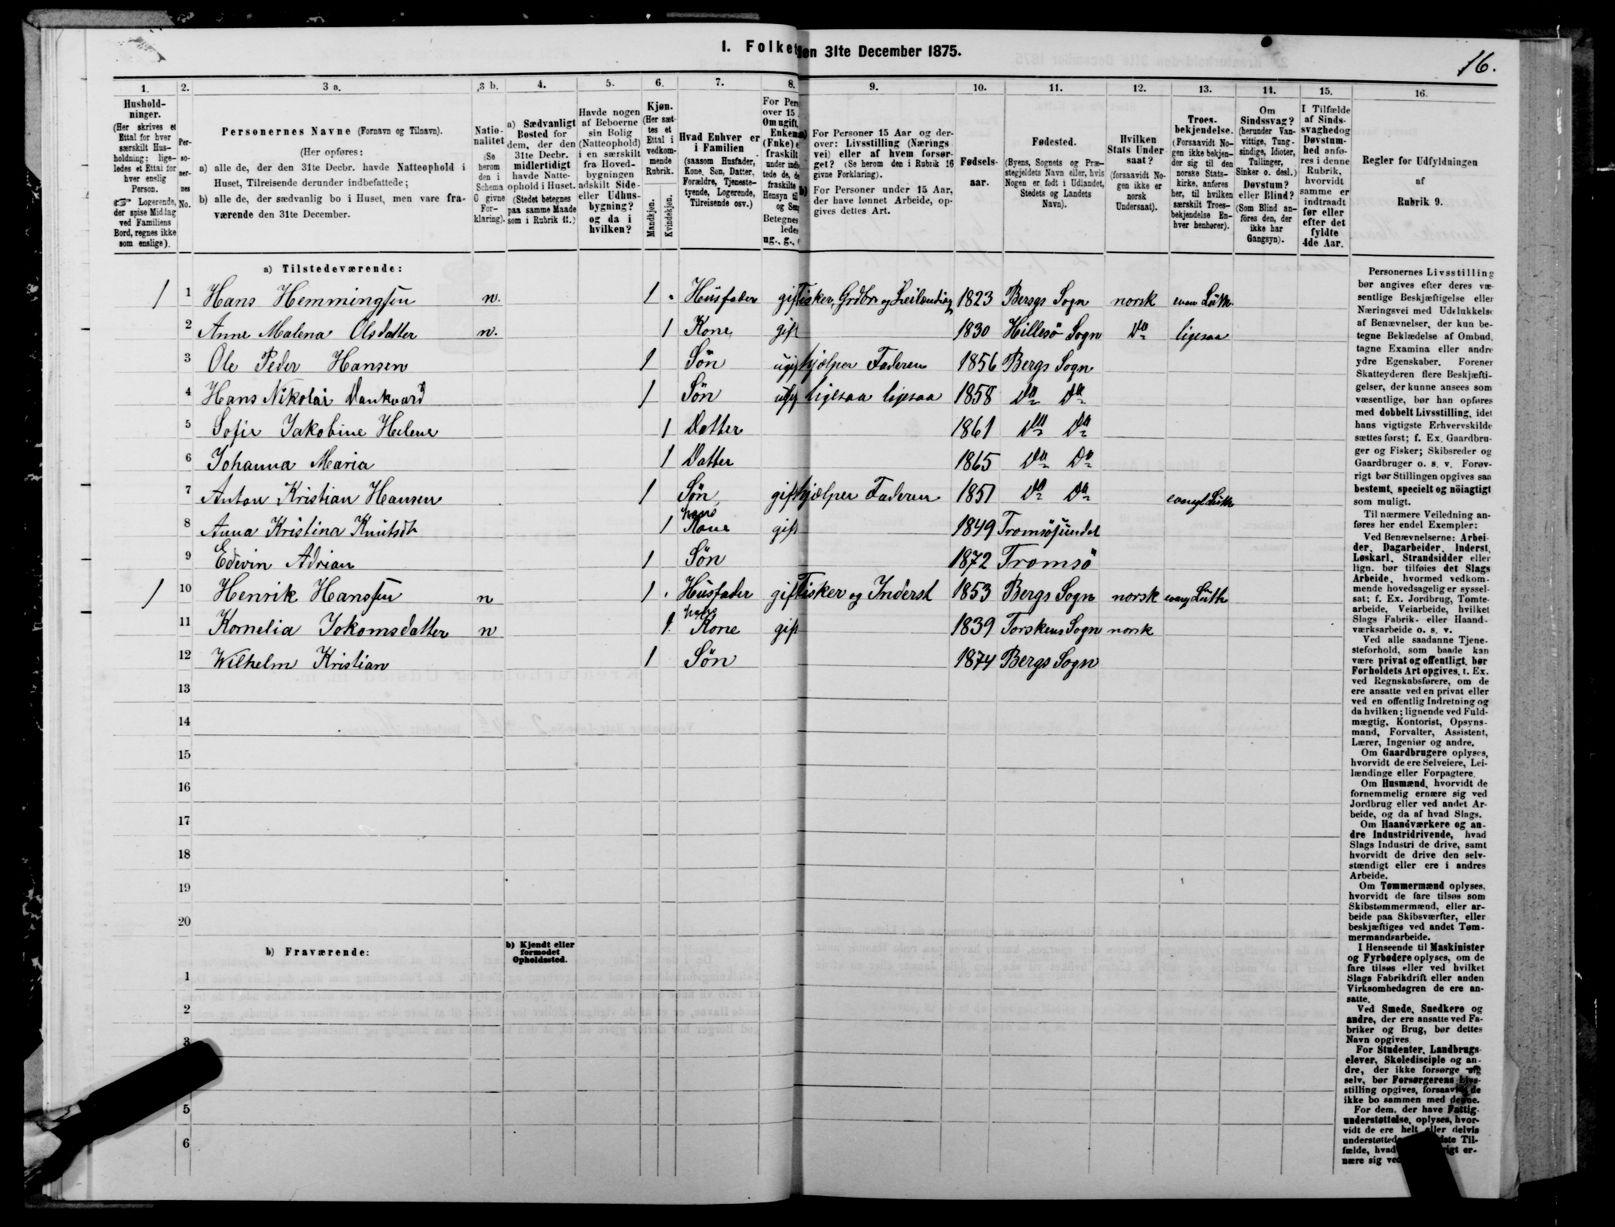 I. Folke
den 31te December 1875.
16.
1.
Hushold-
ninger.
(Her skrives et
Ettal for hver
særskilt Hus-
holdning; lige-
ledes et Ettal for
hver enslig
Person.
Logerende,
der spise Middag
ved Familiens
Bord, regnes ikke
som enslige).
2.
Per-
so-
ner-
nes
No.
3 a.
Personernes Navne (Fornavn og Tilnavn).
(Her opføres:
a) alle de, der den 31te Decbr. havde Natteophold i
Huset, Tilreisende derunder indbefattede;
b) alle de, der sædvanlig bo i Huset, men vare fra-
værende den 31te December.
3 b.
Natio-
nalitet
(Se
herom
den i
Schema
6 givne
For-
klaring).
4.
a) Sædvanligt
Bosted for
dem, der den
31te Decbr.
midlertidigt
havde Natte-
ophold i Huset.
(Stedet betegnes
paa samme Maade
som i Rubrik 11.)
5.
Havde nogen
af Beboerne
sin Bolig
(Natteophold)
i en særskilt
fra Hoved-
bygningen
adskilt Side-
eller Udhus-
bygning?
og da i
hvilken?
6.
Kjøn.
(Her sæt-
tes et
Ettal i
vedkom-
mende
Rubrik.
Mandkjøn.
Kvindekjøn.
7.
Hvad Enhver er
i Familien
(saasom Husfader,
Kone, Søn, Datter,
Forældre, Tjeneste-
tyende, Logerende,
Tilreisende osv.)
8.
For Per
over 15
Om ugift,
Enkem
(Enke)
fraskilt
9.
a) For Personer 15 Aar og der-
over: Livsstilling (Nærings
vei) eller af hvem forsør-
get? (Se herom den i Rubrik 16
givne Forklaring).
b) For Personer under 15 Aar,
der have lønnet Arbeide, op-
gives dettes Art.
10.
Fødsels-
aar.
11.
Fødested.
(Byens, Sognets og Præ-
stegjeldets Navn eller, hvis
Nogen er født i Udlandet,
Stedets og Landets
Navn).
12.
Hvilken
Stats Under
saat?
(forsaavidt No-
gen ikke er
norsk
Undersaat).
13.
Troes-
bekjendelse.
(Forsaavidt No-
gen ikke bekjen-
der sig til den
norske Stats-
kirke, anføres
her, til hvilken
særskilt Troes-
bekjendelse En-
hver henhører).
14.
Om
Sindssvag?
(herunder Van-
vittige, Tung-
sindige, Idioter,
Tullinger,
Sinker o. desl.)
Døvstum?
eller Blind?
(Som Blind an-
føres den, der
ikke har
Gangsyn).
15.
I Tilfælde
af Sinds-
svaghedog
Døvstum-
hed anfø-
res i denne
Rubrik,
hvorvidt
samme er
indtraadt
før eller
efter det
fyldte
4de Aar.
16.
Regler for Udfyldningen
af
Rubrik 9.
a) Tilstedeværende:
1 1 Hans Hemmingsen n. 1 Husfader gift Fisker, Grdbr og Leilending 1823 Bergs Sogn norsk evan Luth.
2 Anne Malena Olsdatter n. 1 Kone gift 1830 Hillesø Sogn Do ligesaa
3 Ole Peder Hansen 1 Søn ugift hjælper Faderen 1856 Bergs Sogn
4 Hans Nikolai Dankvard 1 Søn ugift ligesaa ligesaa 1858 Do Do
5 Sofie Jakobine Helene 1 Datter 1861 Do Do
6 Johanna Maria 1 Datter 1865 Do Do
7 Anton Kristian Hansen 1 Søn gift hjælper Faderen 1851 Do Do evangl Luth
8 Anna Kristina Knutsdt 1 hans Kone gift 1849 Tromsøsundet
9 Edevin Adrian 1 Søn 1872 Tromsø
1 10 Henrik Hanssen n 1 Husfader gift Fisker og Inderst 1853 Bergs Sogn norsk evang Luth
11 Kornelia Jokomsdatter n 1 hans Kone gift 1839 Torskens Sogn norsk
12 Wilhelm Kristian 1 Søn 1874 Bergs Sogn
13
14
15
16
17
18
19
20
b) Fraværende:
b) Kjendt eller
formodet
Opholdssted.
1
2
3
5
6
Personernes Livsstilling
bør angives efter deres væ-
sentlige Beskjæftigelse eller
Næringsvei med Udelukkelse
af Benævnelser, der kun be-
tegne Beklædelse af Ombud,
tagne Examina eller andre
ydre Egenskaber. Forener
Skatteyderen flere Beskjæfti-
gelser, der kunne ansees som
væsentlige, bør han opføres
med dobbelt Livsstilling, idet
hans vigtigste Erhvervskilde
sættes først; f. Ex. Gaardbru-
ger og Fisker; Skibsreder og
Gaardbruger o. s. v. Forøv-
rigt bør Stillingen opgives saa
bestemt, specielt og nøiagtigt
som muligt.
Til nærmere Veiledning an-
føres her endel Exempler:
Ved Benævnelserne: Arbei-
der, Dagarbeider, Inderst,
Løskarl, Strandsidder eller
lign. bør tilføies det Slags
Arbeide, hvormed vedkom-
mende hovedsagelig er syssel-
sat; f. Ex. Jordbrug, Tomte-
arbeide, Veiarbeide, hvilket
Slags Fabrik- eller Haand-
værksarbeide o. s. v.
Ved alle saadanne Tjene-
steforhold, som baade kan
være privat og offentligt, bør
Forholdets Art opgives, t. Ex.
ved Regnskabsførere, om de
ere ansatte ved en privat eller
ved en offentlig Indretning og
da hvilken; lignende ved Fuld-
mægtig, Kontorist, Opsyns-
mand, Forvalter, Assistent,
Lærer, Ingeniør og andre.
Om Gaardbrugere oplyses,
hvorvidt de ere Selveiere, Lei-
lændinge eller Forpagtere.
Om Husmænd, hvorvidt de
fornemmelig ernære sig ved
Jordbrug eller ved andet Ar-
beide, og da af hvad Slags.
Om Haandværkere og an-
dre Industridrivende, hvad
Slags Industri de drive, samt
hvorvidt de drive den selv-
stændigt eller ere i andres
Arbeide.
Om Tømmermænd oplyses,
hvorvidt de fare tilsøs som
Skibstømmermænd, eller ar-
beide paa Skibsværfter, eller
beskjæftiges ved andet Tøm-
mermandsarbeide.
I Henseende til Maskinister
og Fyrbødere oplyses, om de
fare tilsøs eller ved hvilket
Slags Fabrikdrift eller anden
Virksomhedsgren de ere an-
satte.
Ved Smede, Snedkere og
andre, der ere ansatte ved Fa-
briker og Brug, bør dettes
Navn opgives.
For Studenter, Landbrugs-
elever, Skoledisciple og an-
dre, der ikke forsørge sig
selv, bør Forsørgerens Livs-
stilling opgives, forsaavidt de
ikke bo sammen med denne.
For dem, der have Fattig-
understøttelse, oplyses, hvor-
vidt de ere helt eller delvis